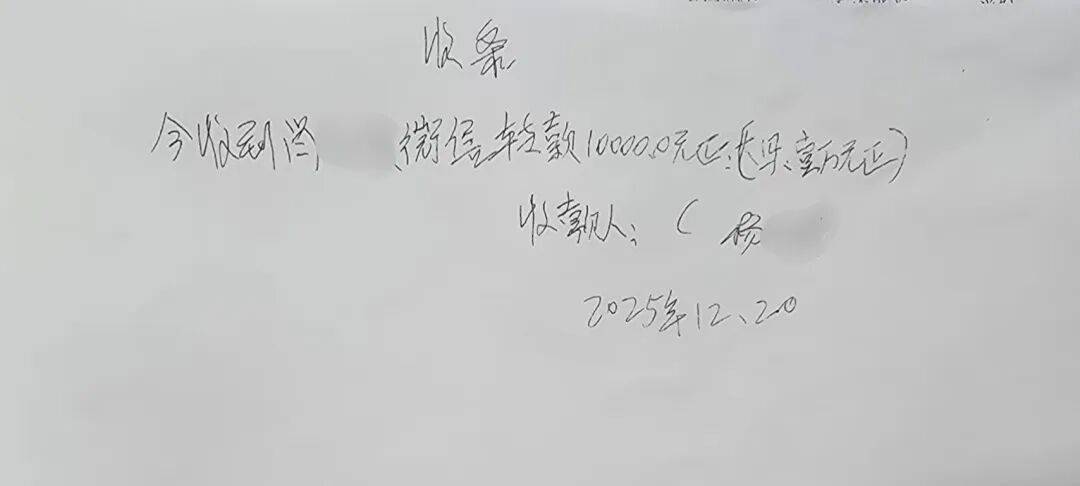 收条
今收到 微信转款10000.0元正:(大写:壹万元正)
收款人:( 杨
2025年12、20